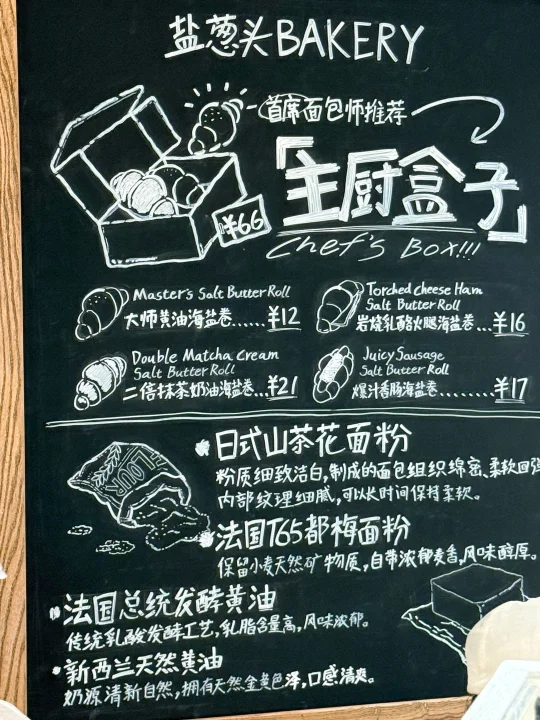 盐葱头BAKERY
首席面包师推荐
「主厨盒子」
¥66
Chef's Box!!!
Master's Salt Butter Roll
大师黄油海盐卷......¥12
Torched cheese Ham
Salt Butter Roll
岩烧乳酪火腿海盐卷...¥16
Double Matcha cream
Salt Butter Roll
二倍抹茶奶油海盐卷...¥21
Juicy Sausage
Salt Butter Roll
爆汁香肠海盐卷........¥17
FLOUR
日式山茶花面粉
粉质细致洁白,制成的面包组织绵密、柔软回弹
内部纹理细腻,可以长时间保持柔软。
法国T65都梅面粉
保留小麦天然矿物质,自带浓郁麦香,风味醇厚。
法国总统发酵黄油
传统乳酸发酵工艺,乳脂含量高,风味浓郁。
新西兰天然黄油
奶源清新自然,拥有天然金黄色泽,口感清爽。